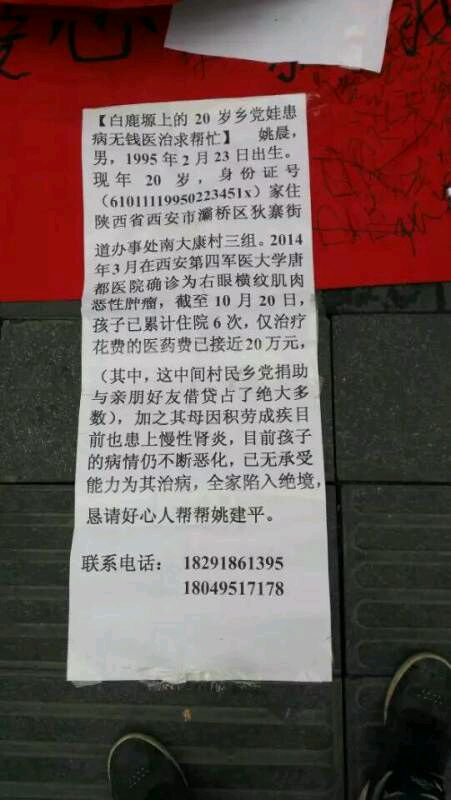 心
【白鹿塬上的 20 岁乡党娃患
病无钱医治求帮忙】 姚晨，
男，1995 年 2 月 23 日出生。
现年 20 岁，身份证号
（61011119950223451x）家住
陕西省西安市灞桥区狄寨街
道办事处南大康村三组。2014
年 3 月在西安第四军医大学唐
都医院确诊为右眼横纹肌肉
恶性肿瘤，截至 10 月 20 日，
孩子已累计住院 6 次，仅治疗
花费的医药费已接近 20 万元，
（其中，这中间村民乡党捐助
与亲朋好友借贷占了绝大多
数），加之其母因积劳成疾目
前也患上慢性肾炎，目前孩子
的病情仍不断恶化，已无承受
能力为其治病，全家陷入绝境，
恳请好心人帮帮姚建平。
联系电话： 18291861395
18049517178